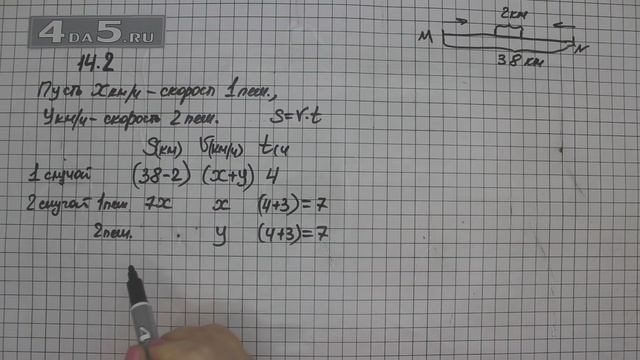 4DA5.RU
14.2
Пусть X км/ч - скорост 1 пеш.,
У км/ч - скорость 2 пеш. S=V·t
S(км) V(км/ч) t(ч
1 случай (38-2) (x+y) 4
2 случай 1 пеш. 7x x (4+3)=7
2 пеш. y (4+3)=7
2 км
M N
38 км